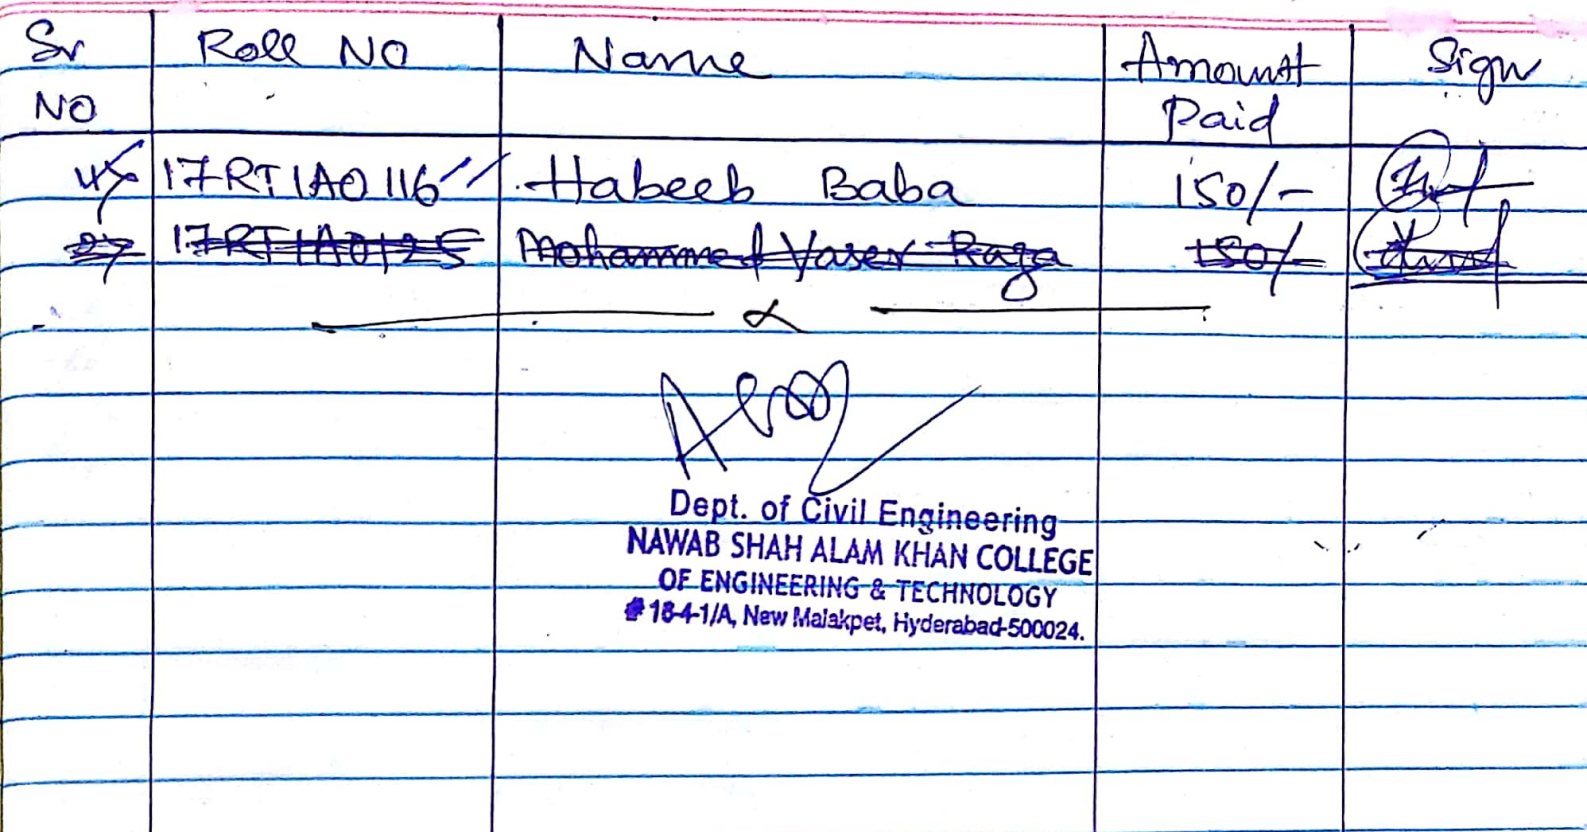 Sr NO Roll NO Name Amount Paid Sign
17RT1A0116 Habeeb Baba 150/-
17RT1A0125 Mohammed Yaser Raza 150/-
Dept. of Civil Engineering
NAWAB SHAH ALAM KHAN COLLEGE
OF ENGINEERING & TECHNOLOGY
# 16-4-1/A, New Malakpet, Hyderabad-500024.